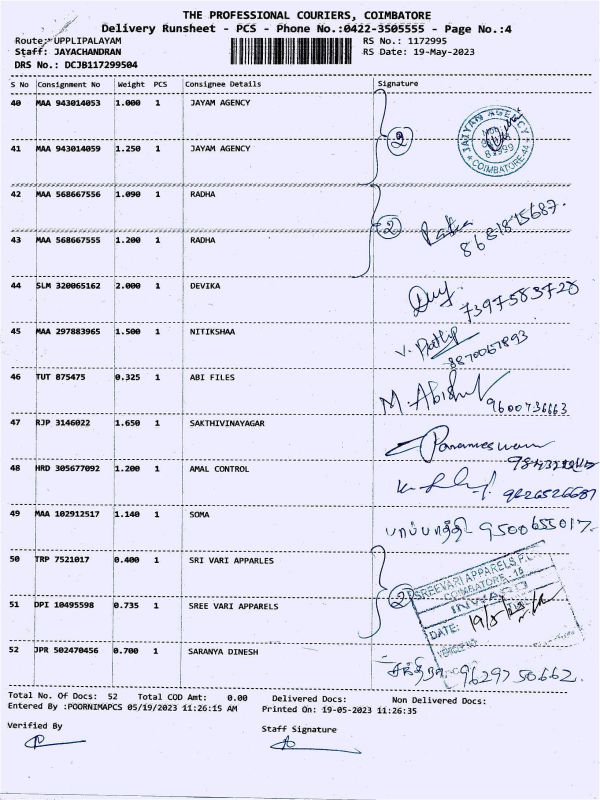 THE PROFESSIONAL COURIERS, COIMBATORE
Delivery Runsheet - PCS - Phone No.:0422-3505555 - Page No.:4
Route: UPPLIPALAYAM RS No.: 1172995
Staff: JAYACHANDRAN RS Date: 19-May-2023
DRS No.: DCJB117299504
S No Consignment No Weight PCS Consignee Details Signature
40 MAA 943014053 1.000 1 JAYAM AGENCY
2
JAIYAM AGENCY
COIMBATORE-44
41 MAA 943014059 1.250 1 JAYAM AGENCY
42 MAA 568667556 1.090 1 RADHA
2 Radha
8681875687.
43 MAA 568667555 1.200 1 RADHA
44 SLM 320065162 2.000 1 DEVIKA
7397583728
45 MAA 297883965 1.500 1 NITIKSHAA
8870067893
46 TUT 875475 0.325 1 ABI FILES
M. 9600736663
47 RJP 3146022 1.650 1 SAKTHIVINAYAGAR
Parameswari
48 HRD 305677092 1.200 1 AMAL CONTROL
49 MAA 102912517 1.140 1 SOMA
பாப்பாத்தி 9500655017
50 TRP 7521017 0.400 1 SRI VARI APPARLES
2
SREEVARI APPARELS P.L
COIMBATORE-15
INWARD
DATE: 19/5/23
51 DPI 10495598 0.735 1 SREE VARI APPARELS
52 JPR 502470456 0.700 1 SARANYA DINESH
9629750662.
Total No. Of Docs: 52 Total COD Amt: 0.00 Delivered Docs: Non Delivered Docs:
Entered By :POORNIMAPCS 05/19/2023 11:26:15 AM Printed On: 19-05-2023 11:26:35
Verified By Staff Signature